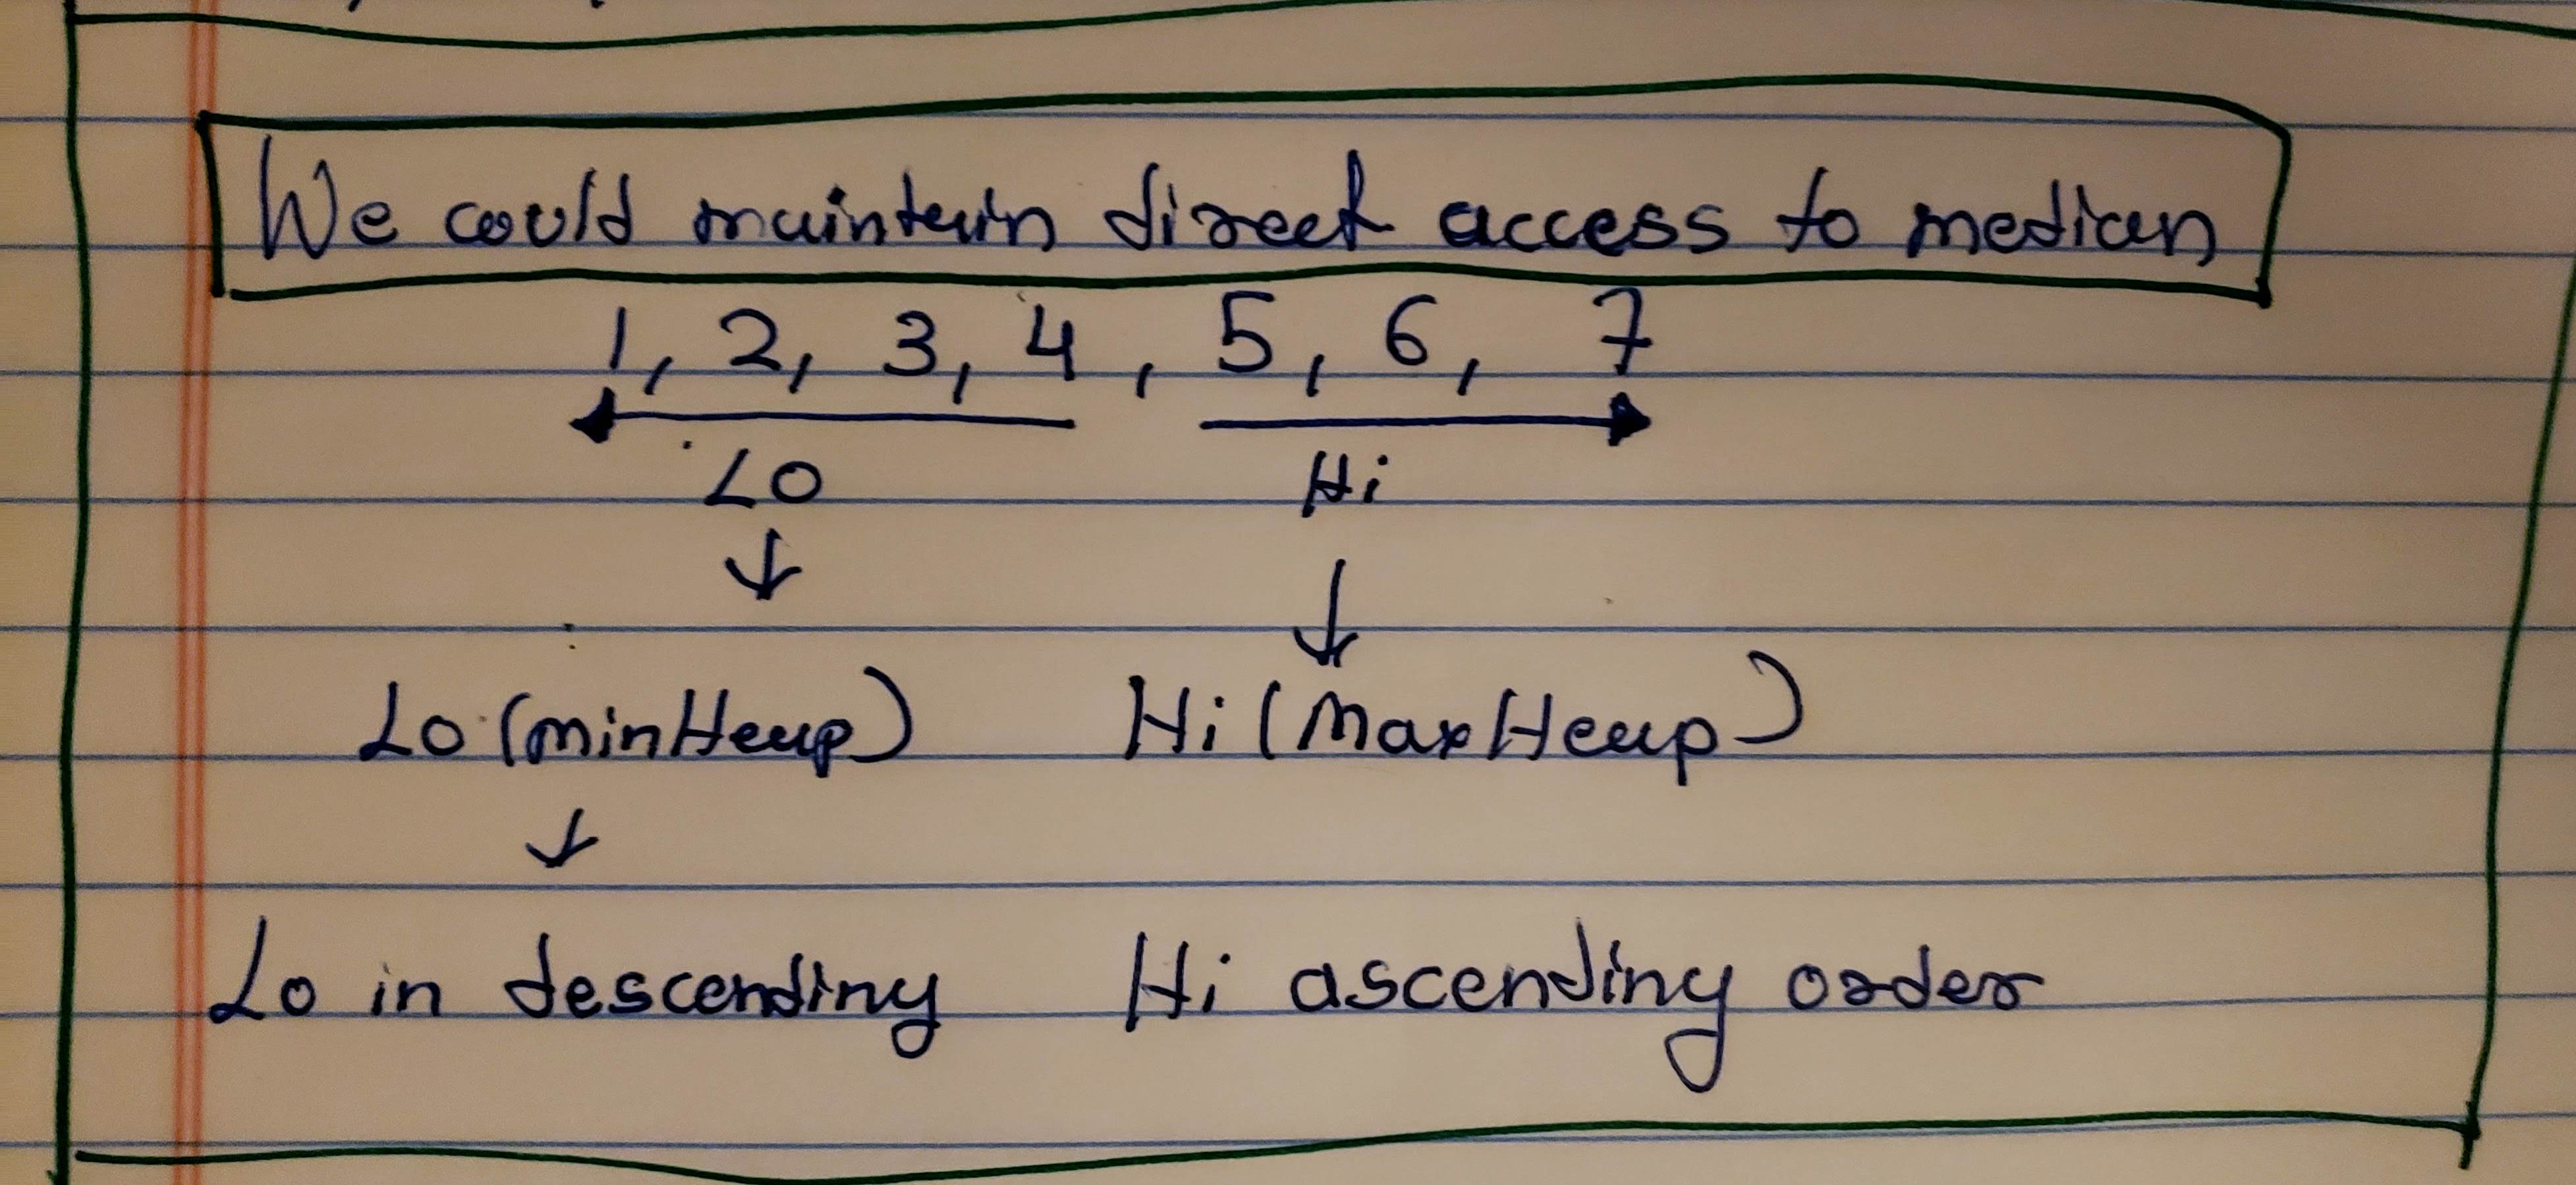 We could maintain direct access to median
1, 2, 3, 4, 5, 6, 7
Lo Hi
Lo (minHeap) Hi (MaxHeap)
Lo in descending Hi ascending order